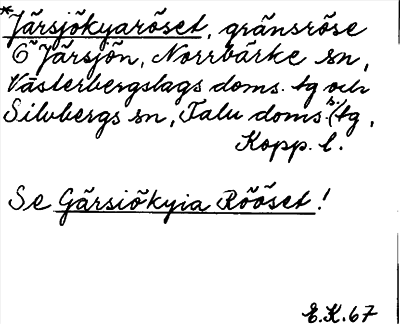 *Järsjökyaröset, gränsröse
Ö Järsjön, Norrbärke sn,
Västerbergslags doms. tg och
Silvbergs sn, Falu doms:s tg,
Kopp. l.
Se Gärsiökyia Röõset!
E.K.67